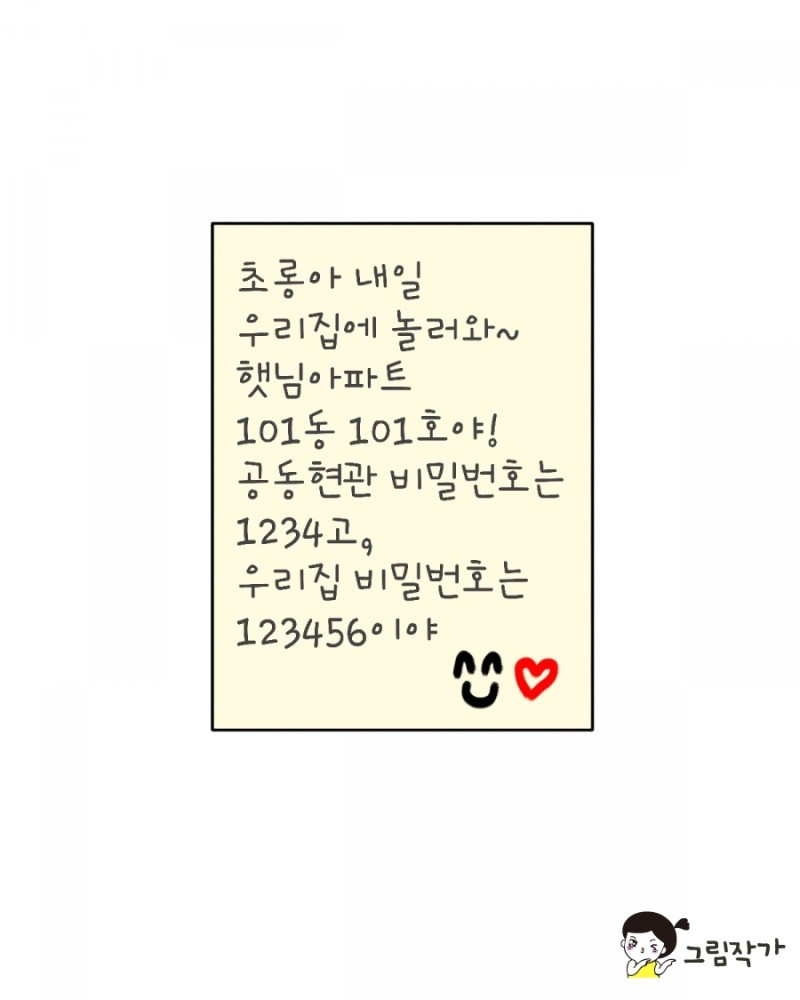 초롱아 내일
우리집에 놀러와~
햇님아파트
101동 101호야!
공동현관 비밀번호는
1234고,
우리집 비밀번호는
123456이야
그림작가